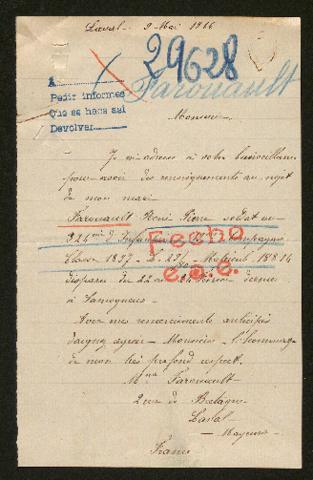 Laval 9 Mai 1916
29628
Farouault
A
Pedir informes
Que se haga así
Devolver
Monsieur
Je m'adresse à votre bienveillance
pour avoir des renseignements au sujet
de mon mari
Farouault Henri Pierre soldat au
324me d'Infanterie Compagnie
Classe 1897 Mle 18814
Fecho
disparu du 22 au 24 février dernier
à Samogneux
Avec mes remerciements anticipés
daignez agréer Monsieur l'hommage
de mon très profond respect.
Mme Farouault
2 rue de Bretagne
Laval
Mayenne
France